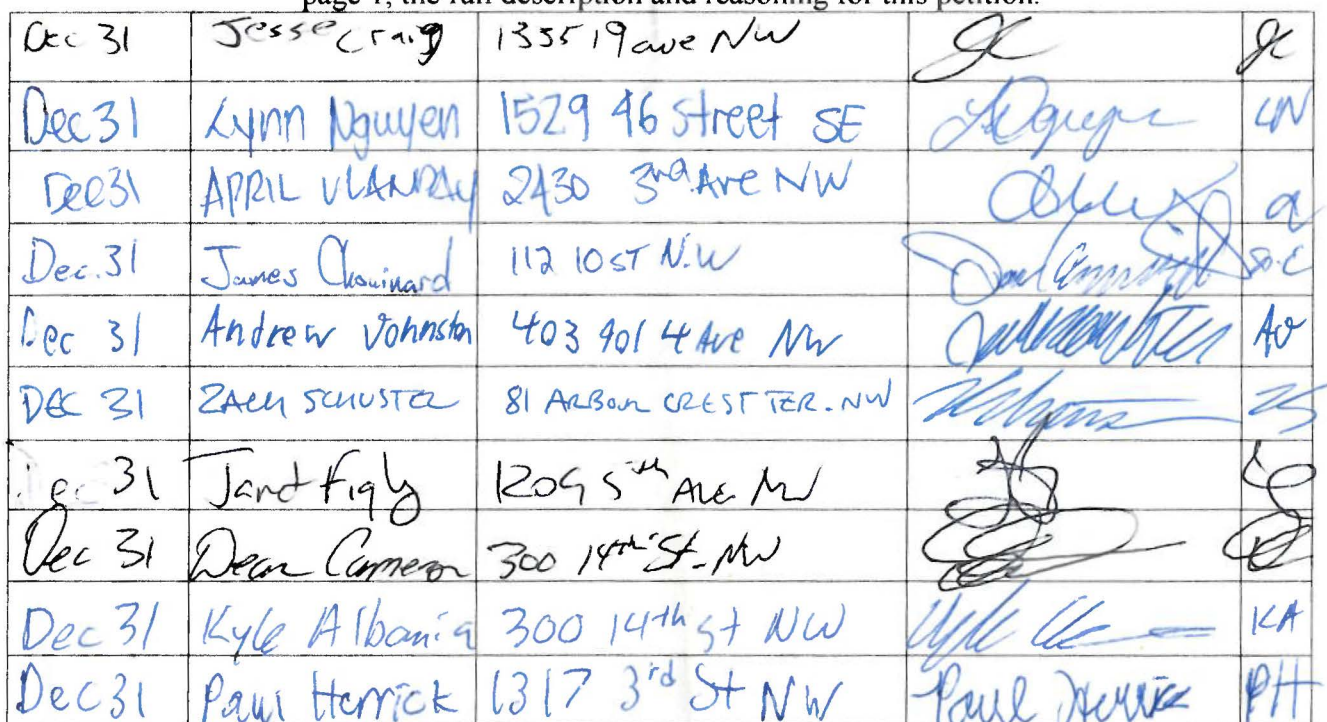 page 1, the full description and reasoning for this petition.
Dec 31 Jesse Craig 1335 19 ave NW JC
Dec 31 Lynn Nguyen 1529 46 Street SE LNguyen LN
Dec 31 APRIL 2430 3rd Ave NW
Dec. 31 James Chouinard 112 10 ST N.W
Dec 31 Andrew Johnston 403 901 4 Ave NW AJ
DEC 31 ZACH SCHUSTER 81 ARBOUR CREST TER. NW ZS
31 1209 5th Ave NW
Dec 31 Dean Cameron 300 14th St. NW
Dec 31 Kyle Albania 300 14th St NW KA
Dec 31 Paul Herrick 1317 3rd St NW Paul Herrick PH